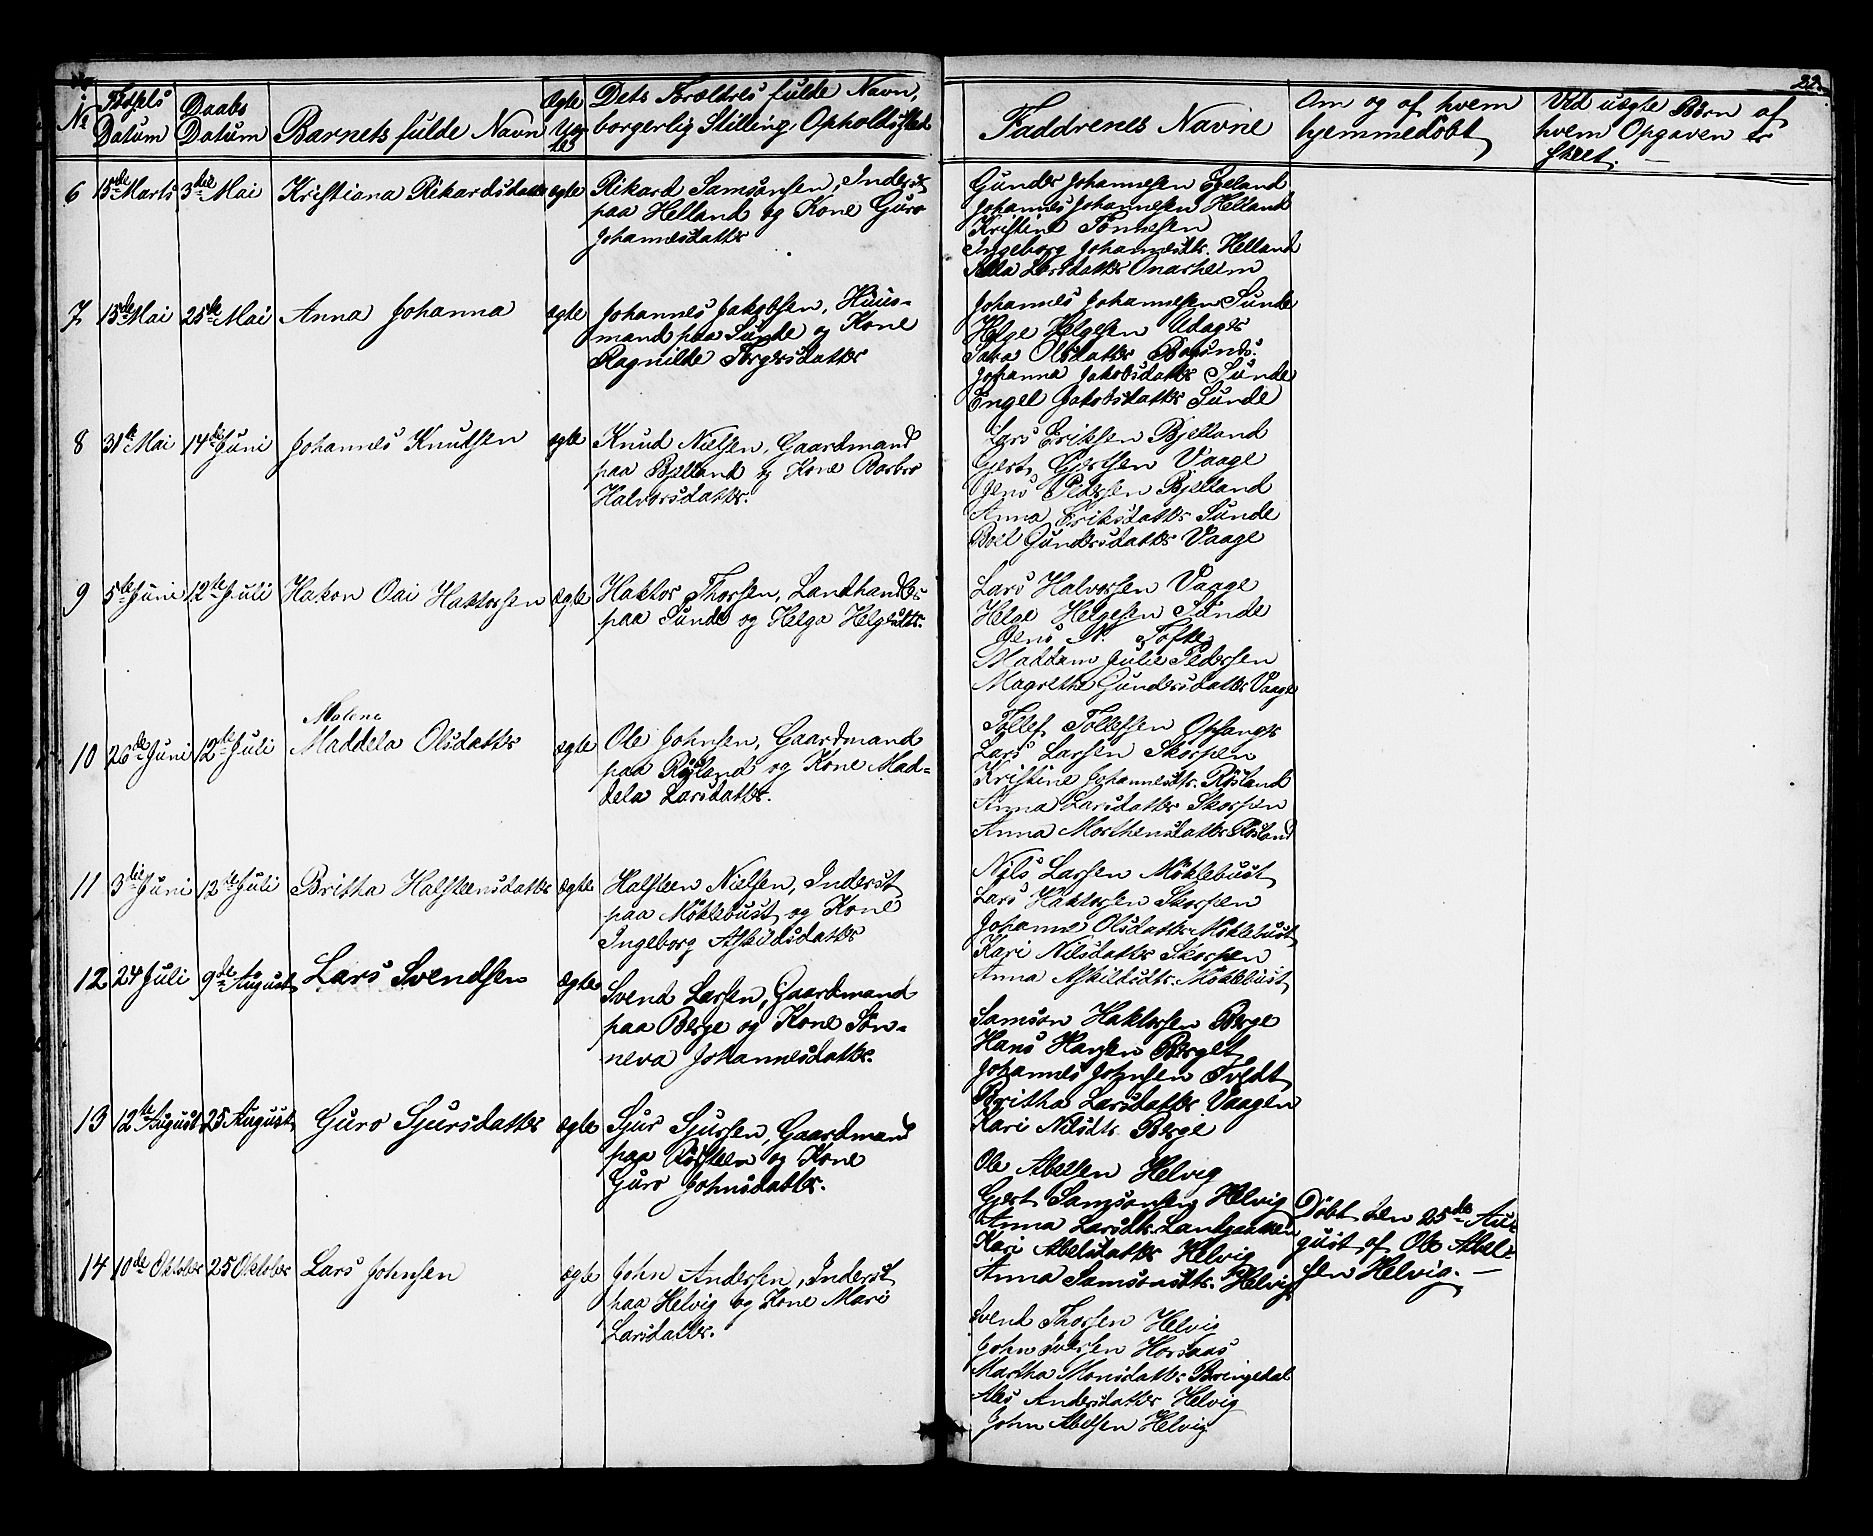 22.
No
Fødsels Datum
Daabs Datum
Barnets fulde Navn
Ægte Uægte
Dets Forældres fulde Navn,
borgerlig Stilling, Opholdssted
Faddrenes Navne
Om og af hvem
hjemmedøbt
Vid uægte Børn af
hvem Opgaven er
skeet. —
6 15de Marts 3die Mai Kristiana Rikardsdatter ægte Rikard Samsonsen, Inderst
paa Helland og Kone Guro
Johannesdatter
Gunder Johannesen Eeland
Johannes Johannesen Helland
Kristine Tønnesen
Ingeborg Johannesdtr. Helland
Larsdatter Onarheim
7 15de Mai 25de Mai Anna Johanna ægte Johannes Jakobsen, Huus-
mand paa Sunde og Kone
Ragnilde Torgersdatter
Johannes Johannesen Sunde
Helge Helgesen
Sara Olsdatter
Johanna Jakobsdatter Sunde
Engel Jakobsdatter Sunde
8 31te Mai 14de Juni Johannes Knudsen ægte Knud Nielsen, Gaardmand
paa Bjelland og Kone Barbro
Halvorsdatter.
Lars Eriksen Bjelland
Gert Gjertsen Vaage
Jens Pedersen Bjelland
Anna Eriksdatter Sunde
Boel Gundersdatter Vaage
9 5te Juni 12te Juli Hakon Oai Haktorsen ægte Haktor Thorsen, Landhandler
paa Sunde og Helga Helgesdtr.
Lars Halvorsen Vaage
Helge Helgesen Sunde
Jens N. Tofte
Maddam Julie Pedersen
Magrethe Gundersdatter Vaage
10 26de Juni 12te Juli Malene
Maddela Olsdatter ægte Ole Johnsen, Gaardmand
paa Røsland og Kone Mad-
dela Larsdatter.
Tollef Tollefsen Opsanger
Lars Larsen Skorpen
Kristine Johannesdtr. Røsland
Anna Larsdatter Skorpen
Anna Morthensdatter Røsland
11 3die Juni 12te Juli Britha Halsteensdatter ægte Halsteen Nielsen, Inderst
paa Møklebust og Kone
Ingeborg Askildsdatter
Nils Larsen Møklebust
Lars Haktorsen Skorpen
Johanne Olsdatter Møklebust
Kari Nilsdatter Skorpen
Anna Askildsdtr. Møklebust
12 24 Juli 9de August Lars Svendsen ægte Svend Larsen, Gaardmand
paa Berge og Kone Søn-
neva Johannesdatter.
Samson Haktorsen Berge
Hans Hansen Berget
Johannes Johnsen Tvedt
Britha Larsdatter Vaagen
Kari Nilsdtr Berge
13 12te August 25 August Guro Sjursdatter ægte Sjur Sjursen, Gaardmand
paa Røsteen og Kone
Guro Johnsdatter.
Ole Abelsen Helvig
Gjert Samsonsen Helvig
Anna Larsdtr.
Kari Abelsdatter Helvig
Anna Samsonsdtr. Helvig
Døbt den 25de Au-
gust af Ole Abel-
sen Helvig. —
14 10de Oktober 25 Oktober Lars Johnsen ægte John Andersen, Inderst
paa Helvig og Kone Mari
Larsdatter.
Svend Thorsen Helvig
John Iversen
Martha Monsdatter Bringedal
Ales Andersdatter Helvig
John Abelsen Helvig